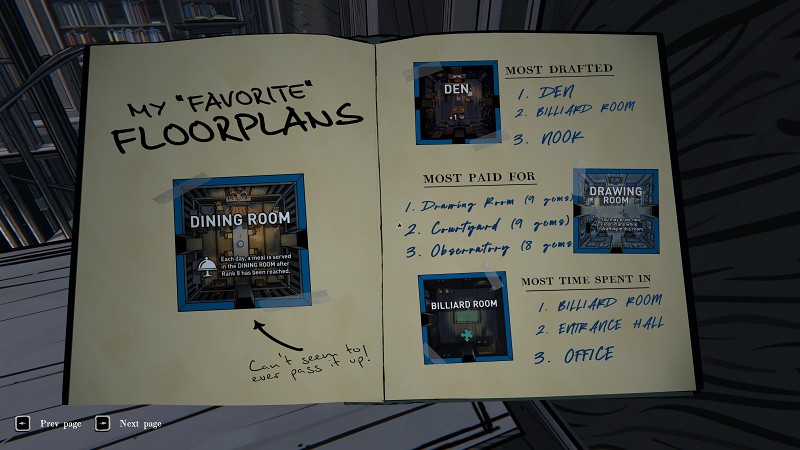 MY "FAVORITE"
FLOORPLANS
DINING ROOM
Each day, a meal is served
in the DINING ROOM after
Rank 8 has been reached.
Can't seem to
ever pass it up!
DEN
+1
MOST DRAFTED
1. DEN
2. BILLIARD ROOM
3. NOOK
MOST PAID FOR
1. Drawing Room (9 gems)
2. Courtyard (9 gems)
3. Observatory (8 gems
DRAWING
ROOM
BILLIARD ROOM
MOST TIME SPENT IN
1. BILLIARD ROOM
2. ENTRANCE HALL
3. OFFICE
Prev page
Next page